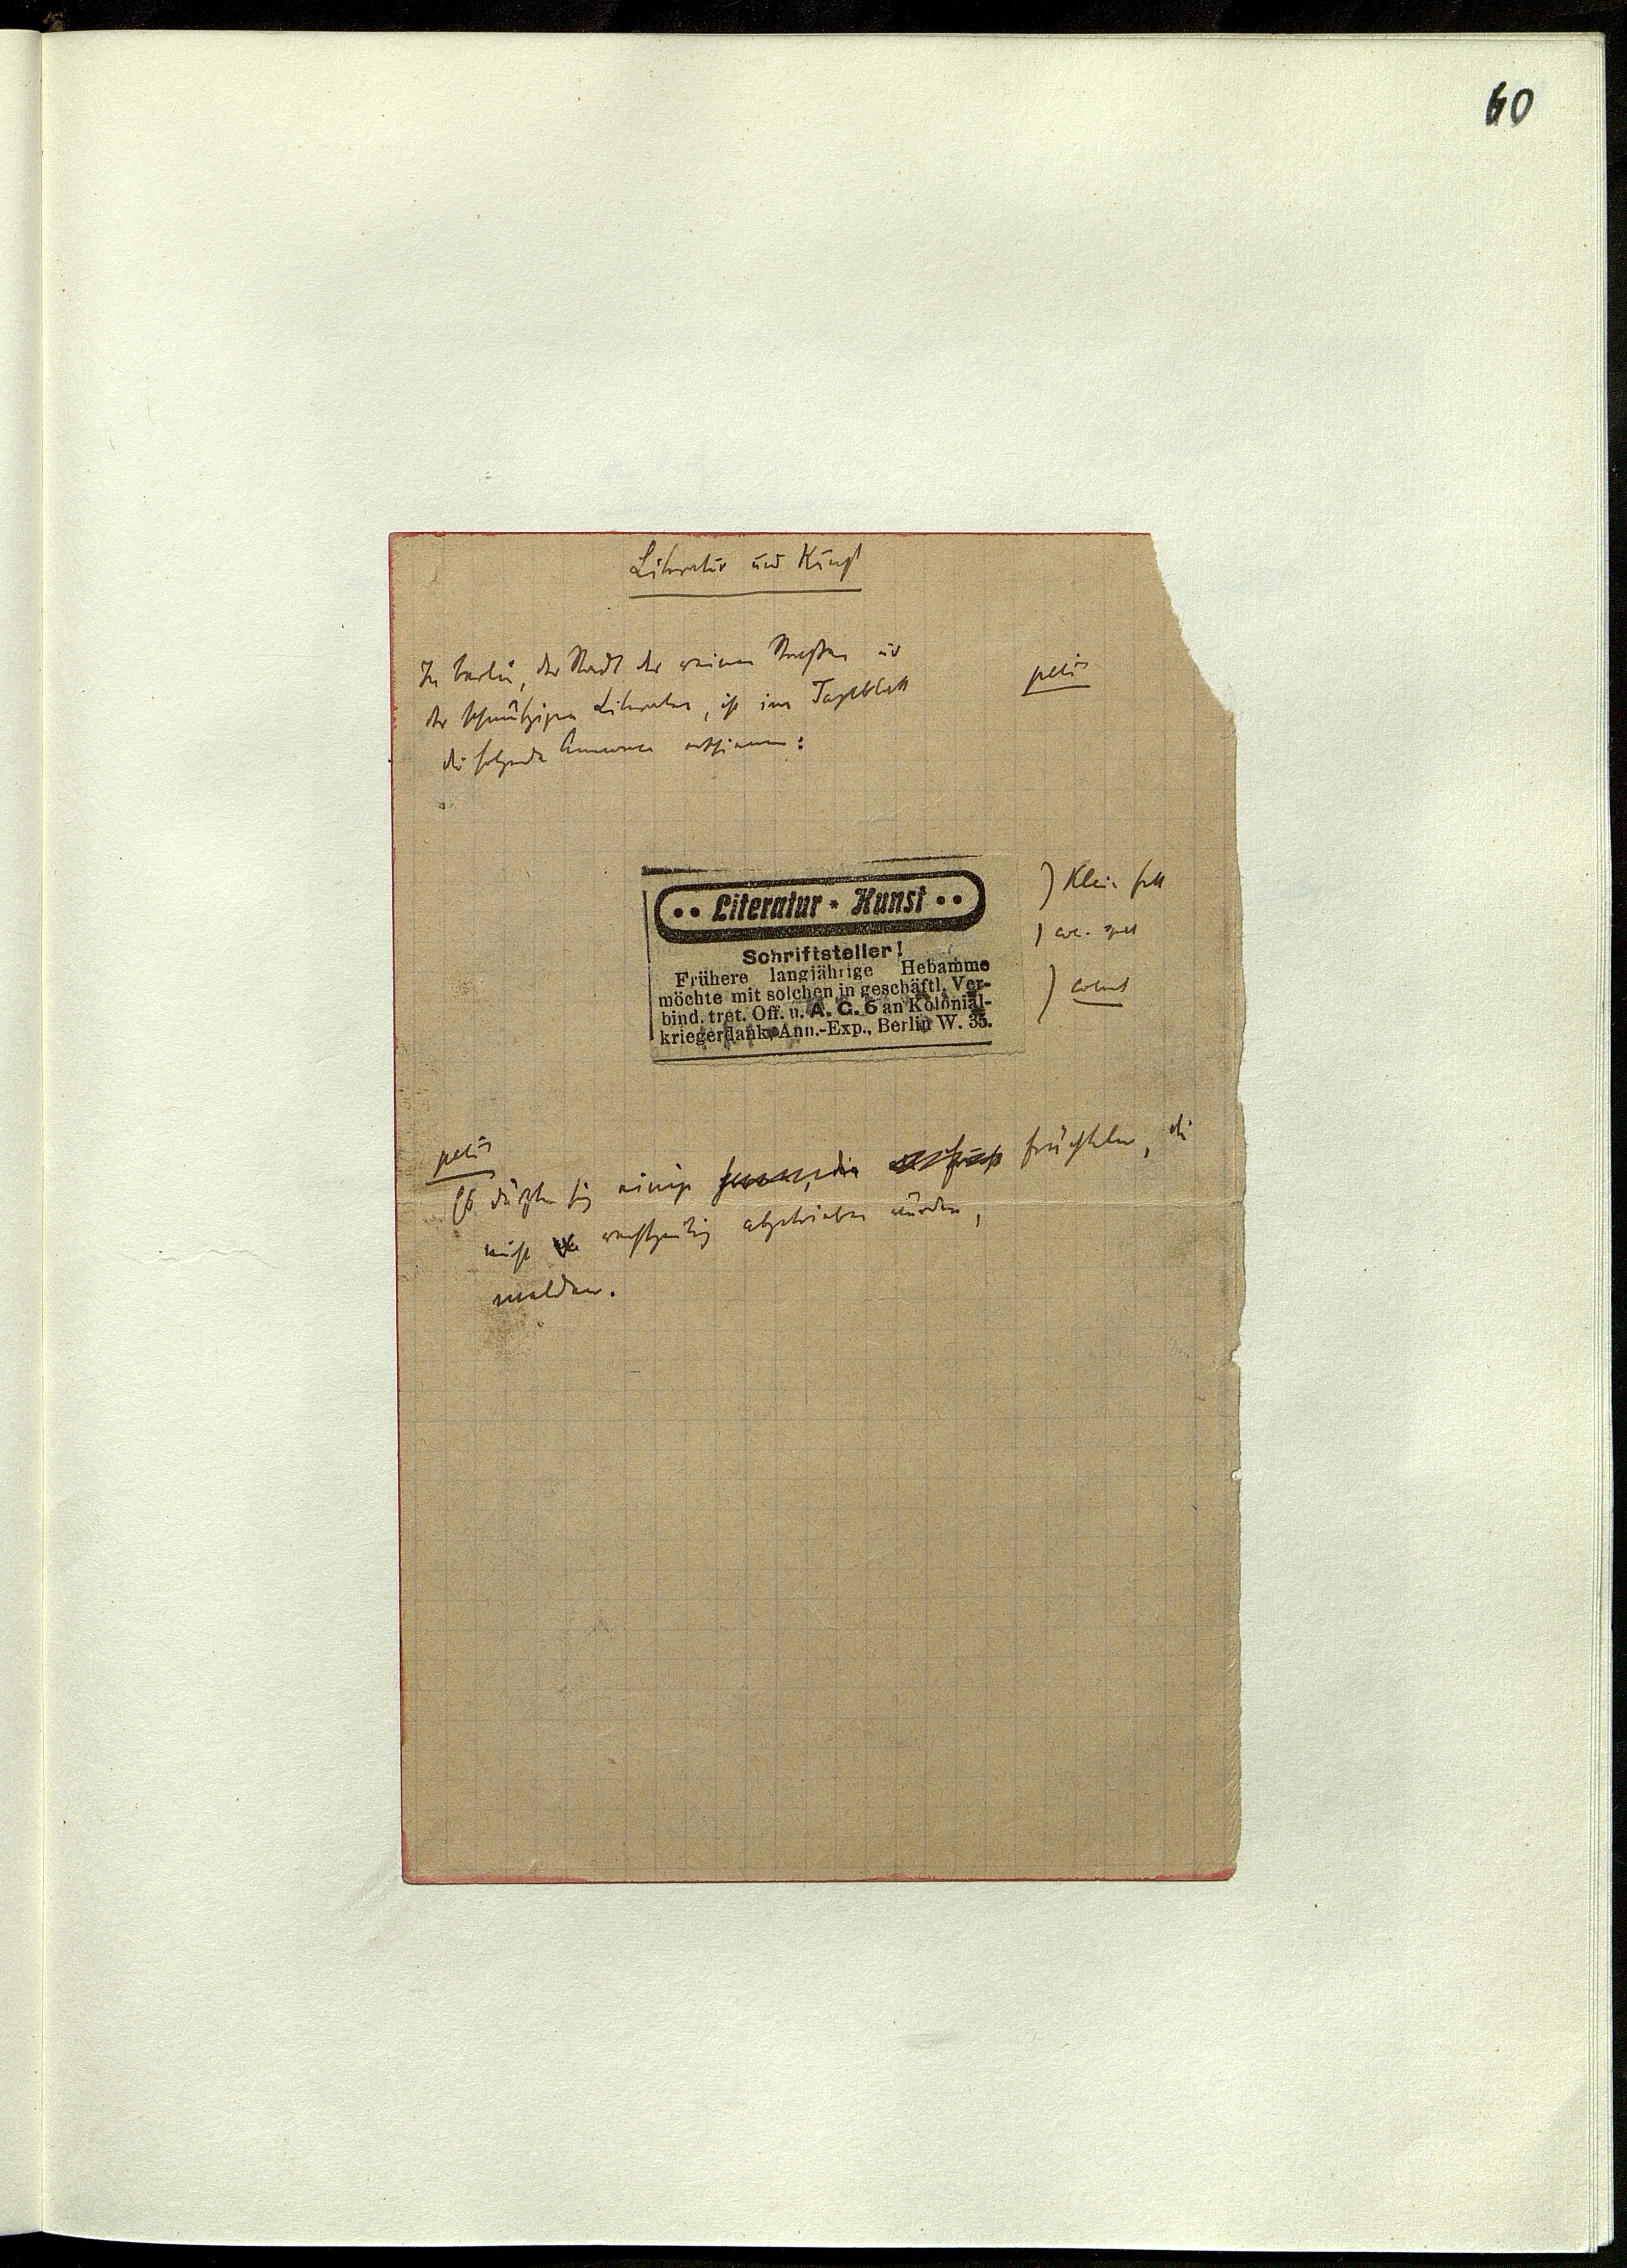 60
Literatur und Kunst
In Berlin, der Stadt der reinen Straßen und
der schmutzigen Literaten, ist im Tageblatt
petit
die folgende Annonce erschienen:
•• Literatur * Kunst ••
) Klein fett
Schriftsteller!
Frühere langjährige Hebamme
möchte mit solchen in geschäftl. Ver-
bind. tret. Off. u. A. C. 6 an Kolonial-
) colonel
kriegerdank, Ann.-Exp., Berlin W. 35.
petit
Es dürften sich einige Früchteln, die
nicht rechtzeitig abgetrieben wurden,
melden.